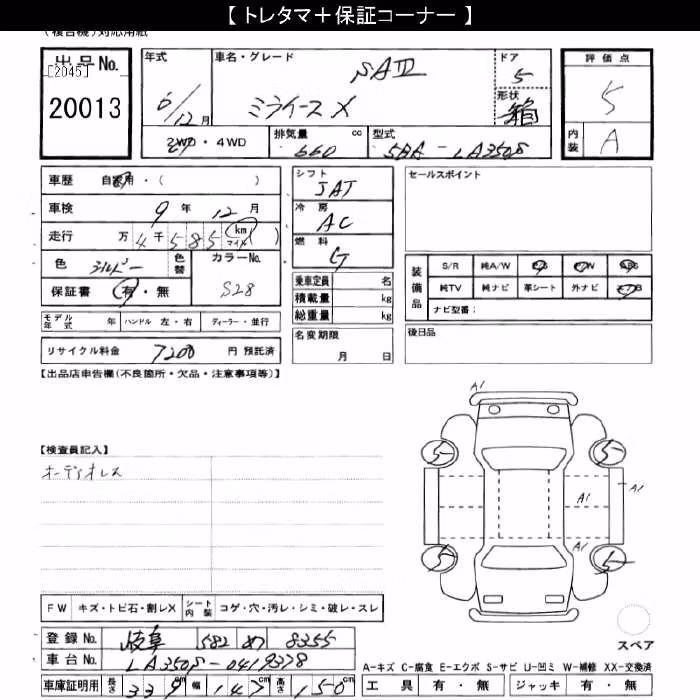 【 トレタマ＋保証コーナー 】
(複合機)対応用紙
出品No.
[2045]
20013
年式
6/12月
車名・グレード
SAⅢ
ミライース X
ドア
5
形状
箱
評価点
5
内装
A
2WD・4WD
排気量
660 cc
型式
5BA-LA350S
車歴 自家用・( )
車検 9年 12月
走行 万 4千 5 8 5 km マイル
色 シルバー
色替
カラーNo.
S28
保証書 有・無
シフト
5AT
冷房
AC
燃料
G
乗車定員 名
積載量 kg
総重量 kg
セールスポイント
装備品
S/R 純A/W P/S P/W ABS
純TV 純ナビ 革シート 外ナビ エアB
ナビ型番：
モデル年式 年 ハンドル 左・右 ディーラー・並行
名変期限
月 日
後日品
リサイクル料金 7200 円 預託済
【出品店申告欄(不良箇所・欠品・注意事項等)】
【検査員記入】
オーディオレス
A1
5 5
A1 A1
A1
5 5
FW キズ・トビ石・割レX シート内装 コゲ・穴・汚レ・シミ・破レ・スレ
スペア
登録No. 岐阜 582 め 8355
車台No. LA350S-0419378
A-キズ C-腐食 E-エクボ S-サビ U-凹ミ W-補修 XX-交換済
車庫証明用 長さ 339 cm 幅 147 cm 高さ 150 cm
工具 有・無 ジャッキ 有・無